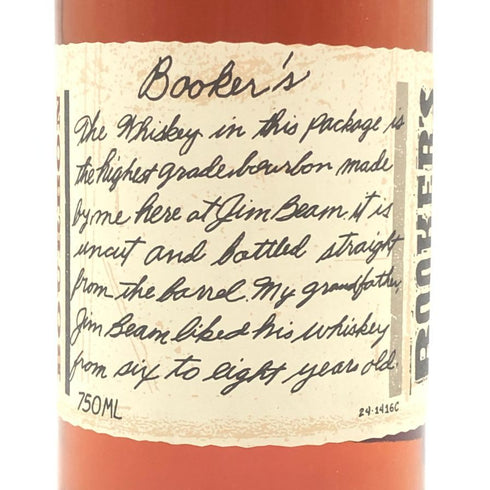 Booker's
The Whiskey in this package is
the highest grade bourbon made
by me here at Jim Beam. it is
uncut and bottled straight
from the barrel. My grandfather,
Jim Beam liked his whiskey
from six to eight years old.
750ML
24-1416C
BOOKER'S